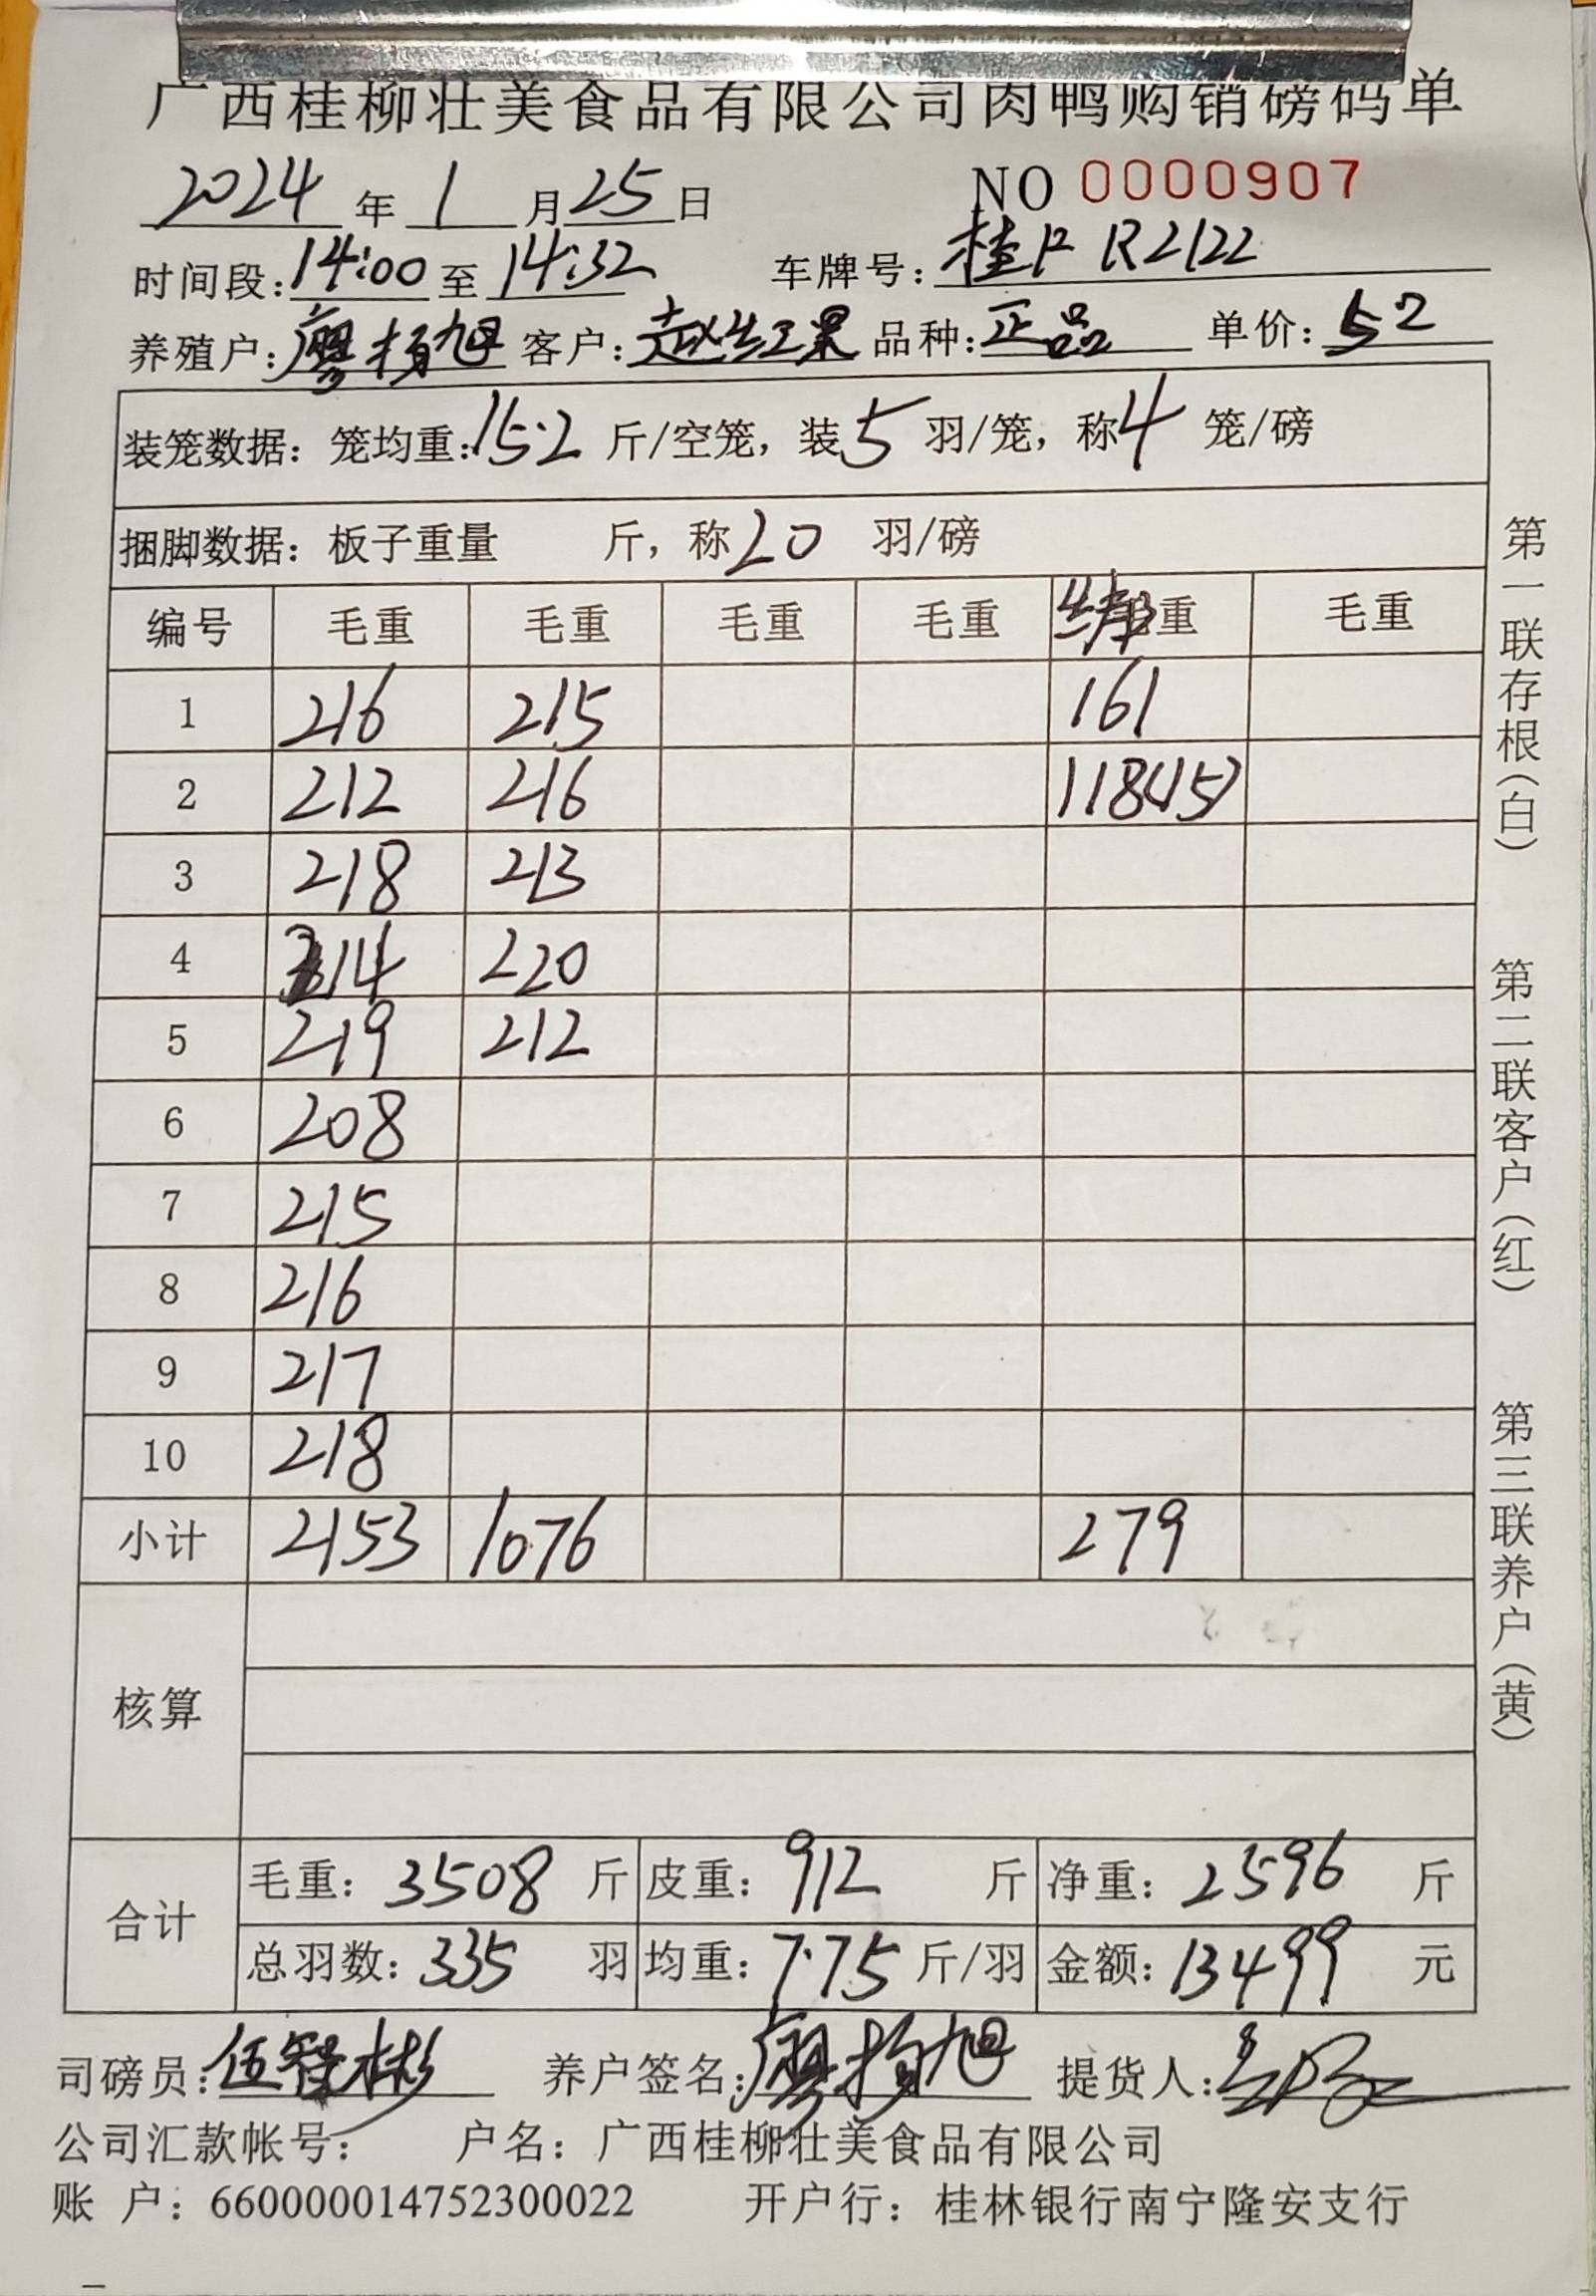 广西桂柳壮美食品有限公司肉鸭购销磅码单
2024年1月25日 NO 0000907
时间段:14:00至14:32 车牌号:桂F R2122
养殖户:廖杨旭 客户:赵红果 品种:正品 单价:52
装笼数据：笼均重:15.2斤/空笼，装5羽/笼，称4笼/磅
捆脚数据：板子重量 斤，称20羽/磅
编号 毛重 毛重 毛重 毛重 重 毛重
1 216 215 161
2 212 216 118(15)
3 218 213
4 214 220
5 219 212
6 208
7 215
8 216
9 217
10 218
小计 2153 1076 279
核算
合计
毛重：3508斤 皮重：912斤 净重：2596斤
总羽数：335羽 均重：7.75斤/羽 金额：13499元
司磅员:伍智彬 养户签名:廖杨旭 提货人:
公司汇款帐号： 户名：广西桂柳壮美食品有限公司
账 户：660000014752300022 开户行：桂林银行南宁隆安支行
第一联存根(白)
第二联客户(红)
第三联养户(黄)